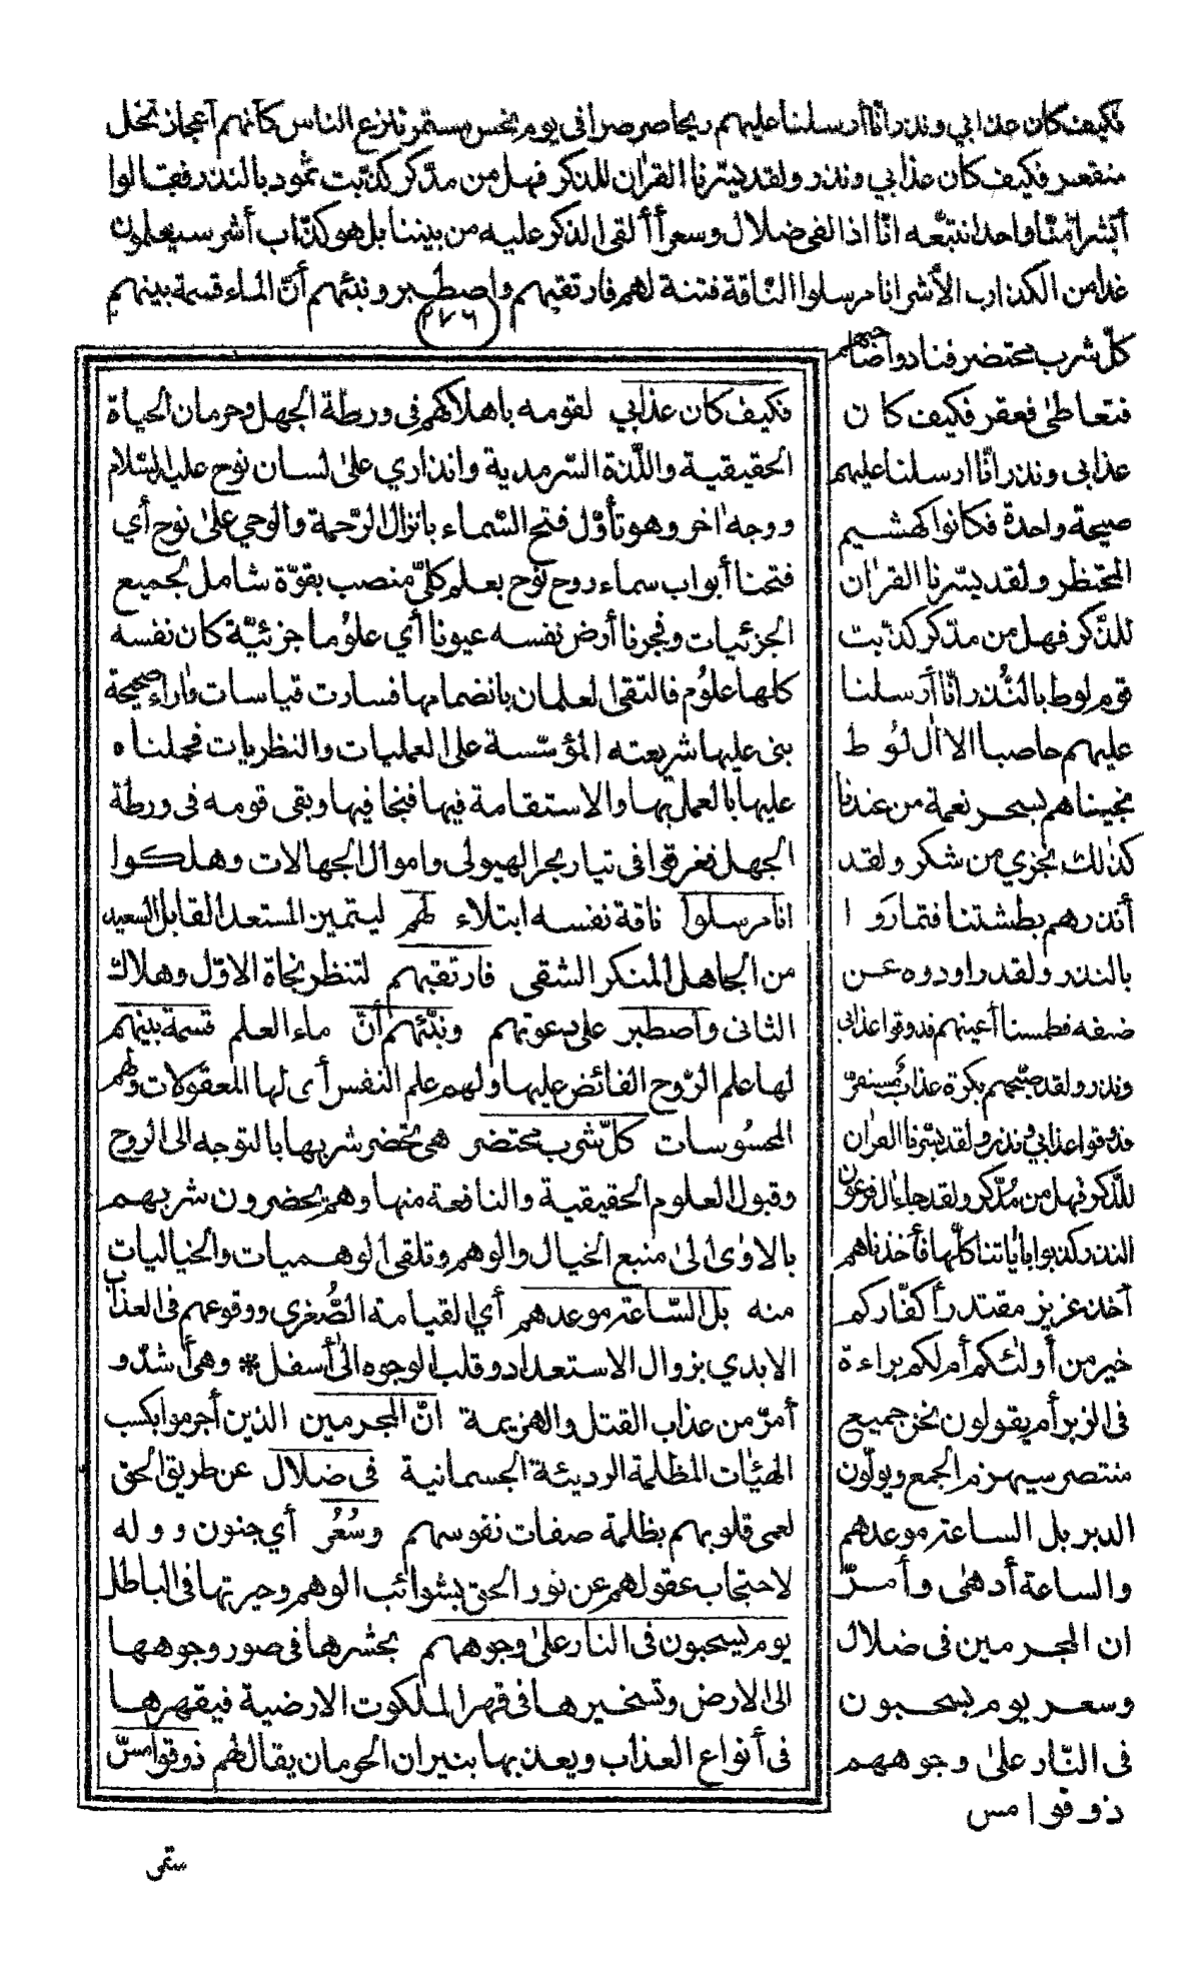 فكيف كان عذابي ونذر انّا أرسلنا عليهم ريحا صرصرا في يوم نحس مستمر تنزع الناس كأنهم أعجاز نخل
منقعر فكيف كان عذابي ونذر ولقد يسّرنا القرآن للذكر فهل من مدّكر كذّبت ثمود بالنذر فقالوا
أبشرا منّا واحدا نتبعّه انّا اذا لفي ضلال وسعر أألقى الذكر عليه من بيننا بل هو كذّاب أشر سيعلمون
غدا من الكذاب الأشر انا مرسلوا النّاقة فتنة لهم فارتقبهم واصطبر ونبئهم أنّ الماء قسمة بينهم
٢٧٦
كلّ شرب محتضر فنادوا صاحبهم
فتعاطى فعقر فكيف كان
عذابى ونذر انّا ارسلنا عليهم
صيحة واحدة فكانوا كهشيم
المحتظر ولقد يسّرنا القرآن
للذّكر فهل من مدّكر كذّبت
قوم لوط بالنُّذر انّا أرسلنا
عليهم حاصبا الا اٰل لُوط
نجيناهم بسحر نعمة من عندنا
كذٰلك نجزي من شكر ولقد
أنذرهم بطشتنا فتمارَوا
بالنذر ولقد راودوه عن
ضيفه فطمسنا أعينهم فذوقوا عذابى
ونذر ولقد صبّحهم بكرة عذابٌ مستقرّ
فذوقوا عذابي ونذر ولقد يسّرنا القراٰن
للذّكر فهل من مُدّكر ولقد جاء اٰل فرعون
النذر كذبوا باٰياتنا كلّها فأخذناهم
أخذ عزيز مقتدر أكفّاركم
خير من أولئكم أم لكم براءة
فى الزبر أم يقولون نحن جميع
منتصر سيهزم الجمع ويولّون
الدبر بل الساعة موعدهم
والساعة أدهى وأمرّ
ان المجرمين فى ضلال
وسعر يوم يسحبون
فى النّار على وجوههم
ذوقوا مس
فكيف كان عذابي لقومه باهلاكهم في ورطة الجهل وحرمان الحياة
الحقيقية واللّذة السّرمدية وانذاري على لسان نوح عليه السّلام
ووجه اٰخر وهو تأوّل فتح السّماء بانزال الرّحمة والوحي على نوح أي
فتحنا أبواب سماء روح نوح بعلم كليّ منصب بقوّة شامل لجميع
الجزئيات وفجرنا أرض نفسه عيونا أي علوُما جزئيّة كان نفسه
كلها علوُم فالتقى العلمان بانضمامها فسارت قياسات واٰراء صحيحة
بنى عليها شريعته المؤسّسة على العمليات والنظريات فحملناه
عليها بالعمل بها والاستقامة فيها فنجا فيها وبقى قومه فى ورطة
الجهل فغرقوا فى تيار بحر الهيولى وامواال الجهالات وهلكوا
انا مرسلوا ناقة نفسه ابتلاء لهم ليتميز المستعد القابل السعيد
من الجاهل المنكر الشقى فارتقبهم لتنظر نجاة الاوّل وهلاك
الثانى واصطبر على دعوتهم ونبّئهم أنّ ماء العلم قسمة بينهم
لها علم الرّوح الفائض عليها ولهم علم النفس أى لها المعقولات ولهم
المحسُوسات كلّ شرب محتضر هى تحضر شربها بالتوجه الى الروح
وقبول العلوم الحقيقية والنافعة منها وهم يحضرون شربهم
بالاوٰى الىٰ منبع الخيال والوهم وتلقى الوهميات والخياليات
منه بل السّاعة موعدهم أي القيامة الصُّغرى ووقوعهم فى العذاب
الابدي بزوال الاستعداد وقلب الوجوه الىٰ أسفل * وهى أشدّ و
أمرّ من عذاب القتل والهزيمة انّ المجرمين الذين أجرموا بكسب
الهئيات المظلمة الرديئة الجسمانية فى ضلال عن طريق الحق
لعمى قلوبهم بظلمة صفات نفوسهم وسُعُر أي جنون ووله
لاحتجاب عقولهم عن نور الحق بشوائب الوهم وحيرتها فى الباطل
يوم يسحبون فى النار علىٰ وجوههم بحشرها فى صور وجوهها
الى الارض وتسخيرها فى قهر الملكوت الارضية فيقهرها
فى أنواع العذاب ويعذبها بنيران الحرمان يقال لهم ذوقوا مسّ
سقر